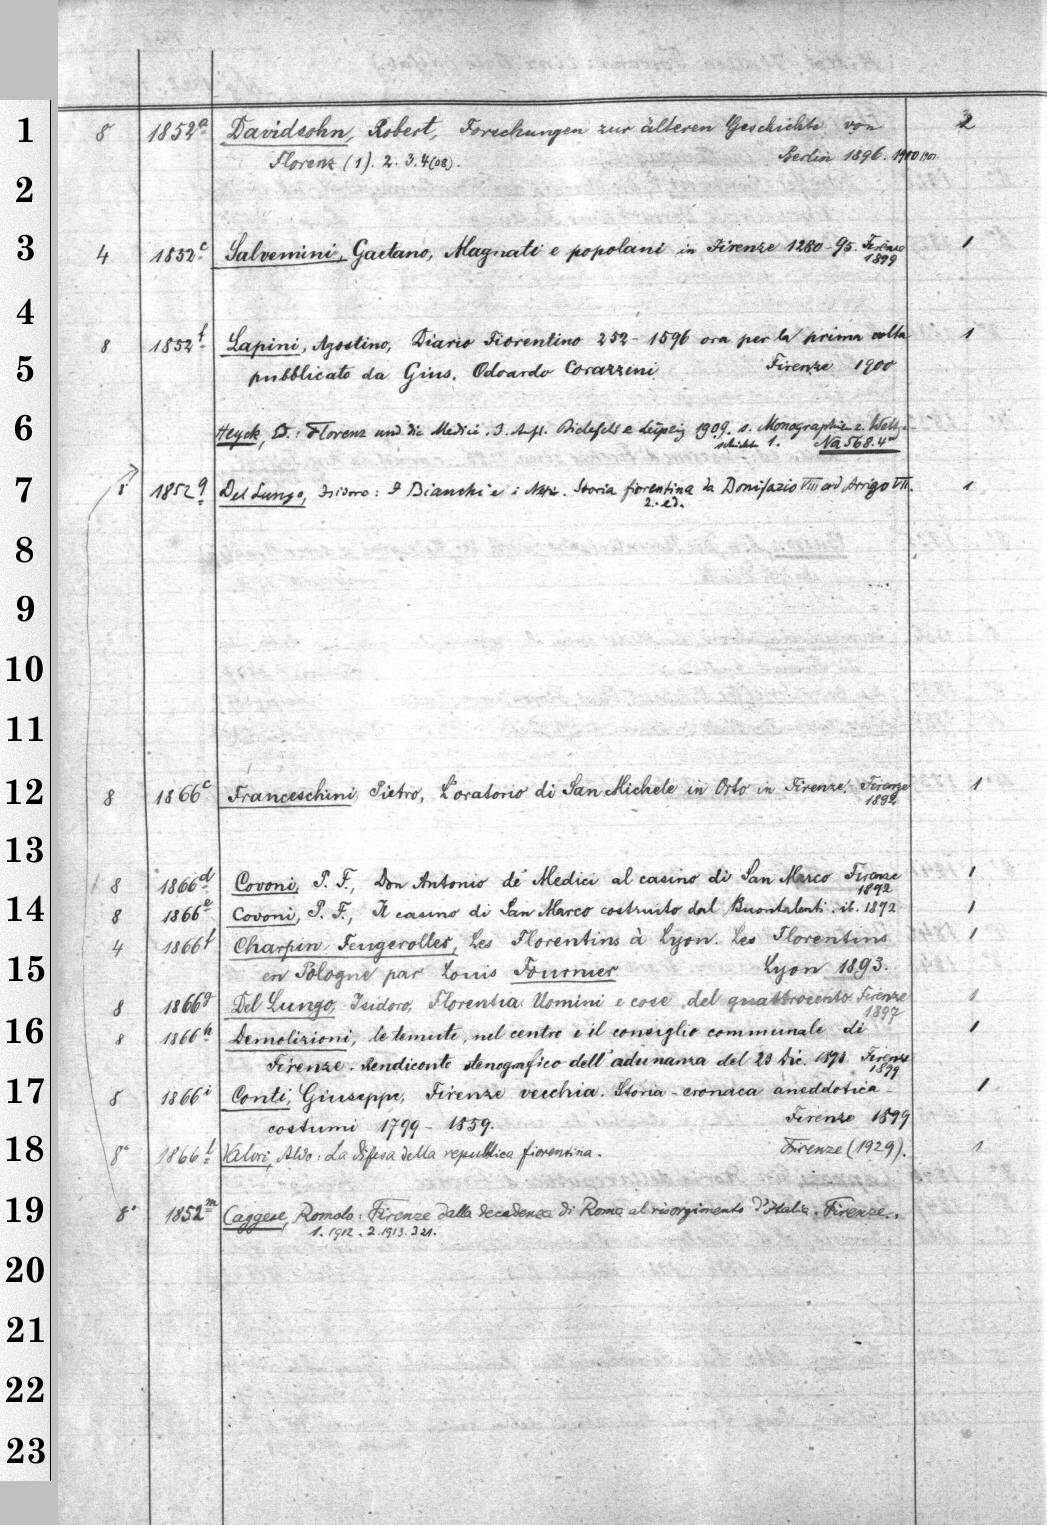 1 8 1852a Davidsohn, Robert, Forschungen zur älteren Geschichte von 2
Florenz (1). 2. 3. 4(08). Berlin 1896. 1900 1901
2
3 4 1852c Salvemini, Gaetano, Magnati e popolani in Firenze 1280-95. Firenze 1
1899
4
8 1852f Lapini, Agostino, Diario Fiorentino 252-1596 ora per la prima volta 1
5 pubblicato da Gius. Odoardo Corazzini Firenze 1900
6 Heyck, Ed.: Florenz und die Medici. 3. Aufl. Bielefeld e Leipzig 1909. s. Monographien z. Weltg-
schichte 1. Na 568.4°
7 8 1852g Del Lungo, Isidoro: I Bianchi e i Neri. Storia fiorentina da Bonifazio VIII ad Arrigo VII. 1
2. ed.
8
9
10
11
12 8 1866c Franceschini, Pietro, L'oratorio di San Michele in Orto in Firenze. Firenze 1
1892
13
8 1866d Covoni, P. F., Don Antonio de' Medici al casino di San Marco Firenze 1
1892
14 8 1866e Covoni, P. F., Il casino di San Marco costruito dal Buontalenti. ib. 1892 1
4 1866f Charpin-Feugerolles, Les Florentins à Lyon. Les Florentins 1
15 en Pologne par Louis Fournier Lyon 1893.
8 1866g Del Lungo, Isidoro, Florentia Uomini e cose del quattrocento Firenze 1
1897
16 8 1866h Demolizioni, le temute, nel centro e il consiglio communale di 1
Firenze. Rendiconto stenografico dell'adunanza del 23 Dic. 1898. Firenze
1899
17 8 1866i Conti, Giuseppe, Firenze vecchia. Storia-cronaca aneddotica- 1
costumi 1799-1859. Firenze 1899
18 8° 1866l Valori, Aldo: La difesa della repubblica fiorentina. Firenze (1929). 1
19 8° 1852m Caggese, Romolo: Firenze dalla decadenza di Roma al risorgimento d'Italia. Firenze.
1. 1912. 2. 1913. 3 21.
20
21
22
23